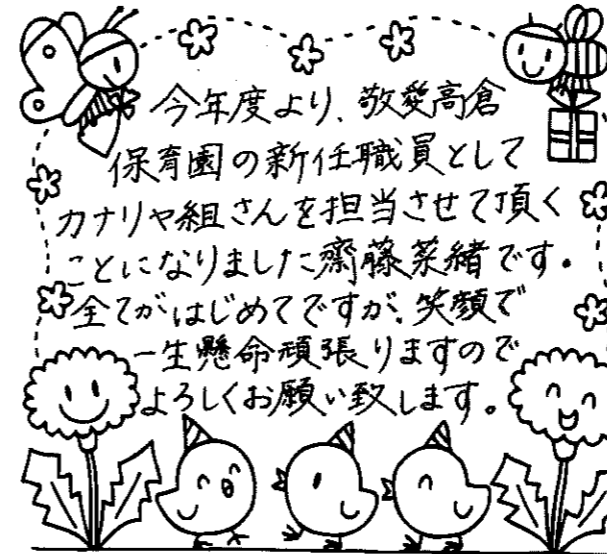 今年度より、敬愛高倉
保育園の新任職員として
カナリヤ組さんを担当させて頂く
ことになりました齋藤菜緒です。
全てがはじめてですが、笑顔で
一生懸命頑張りますので
よろしくお願い致します。